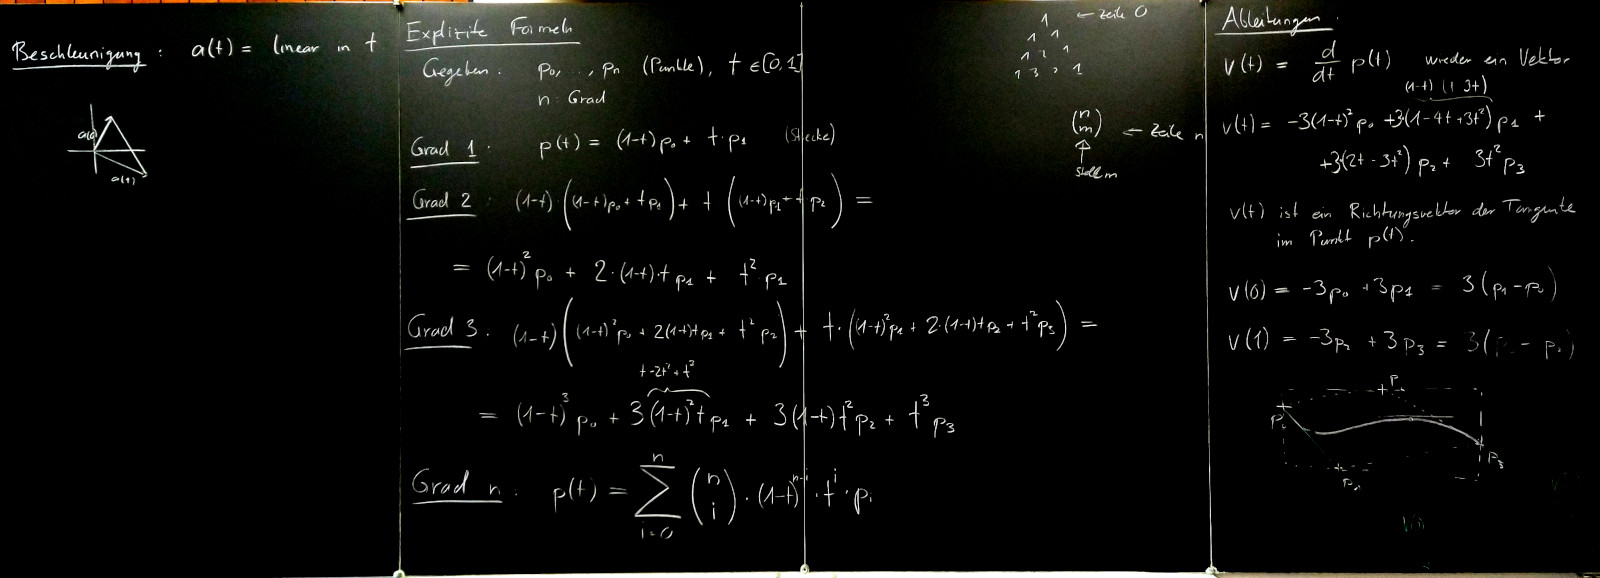 Beschleunigung : a(t) = linear in t
a(0)
a(1)
Explizite Formeln
Gegeben : p₀, ..., pₙ (Punkte), t ∈ [0,1]
n : Grad
Grad 1 : p(t) = (1-t) p₀ + t · p₁ (Strecke)
Grad 2 : (1-t) · ((1-t)p₀ + t p₁) + t ((1-t)p₁ + t p₂) =
= (1-t)² p₀ + 2·(1-t)·t p₁ + t² · p₂
Grad 3 : (1-t) ((1-t)² p₀ + 2(1-t)t p₁ + t² p₂) + t · ((1-t)² p₁ + 2·(1-t)t p₂ + t² p₃) =
t - 2t² + t³
= (1-t)³ p₀ + 3 (1-t)² t p₁ + 3 (1-t) t² p₂ + t³ p₃
Grad n : p(t) = ∑ᵢ₌₀ⁿ (n i) · (1-t)ⁿ⁻ⁱ · tⁱ · pᵢ
1 ← Zeile 0
1 1
1 2 1
1 3 3 1
(n m) ← Zeile n
↑
Stelle m
Ableitungen :
v(t) = d/dt p(t) wieder ein Vektor
(1-t) (1 3t)
v(t) = -3(1-t)² p₀ +3(1-4t+3t²) p₁ +
+3(2t - 3t²) p₂ + 3t² p₃
v(t) ist ein Richtungsvektor der Tangente
im Punkt p(t).
v(0) = -3p₀ + 3p₁ = 3(p₁ - p₀)
v(1) = -3p₂ + 3p₃ = 3(
p₀
p₃
p₁